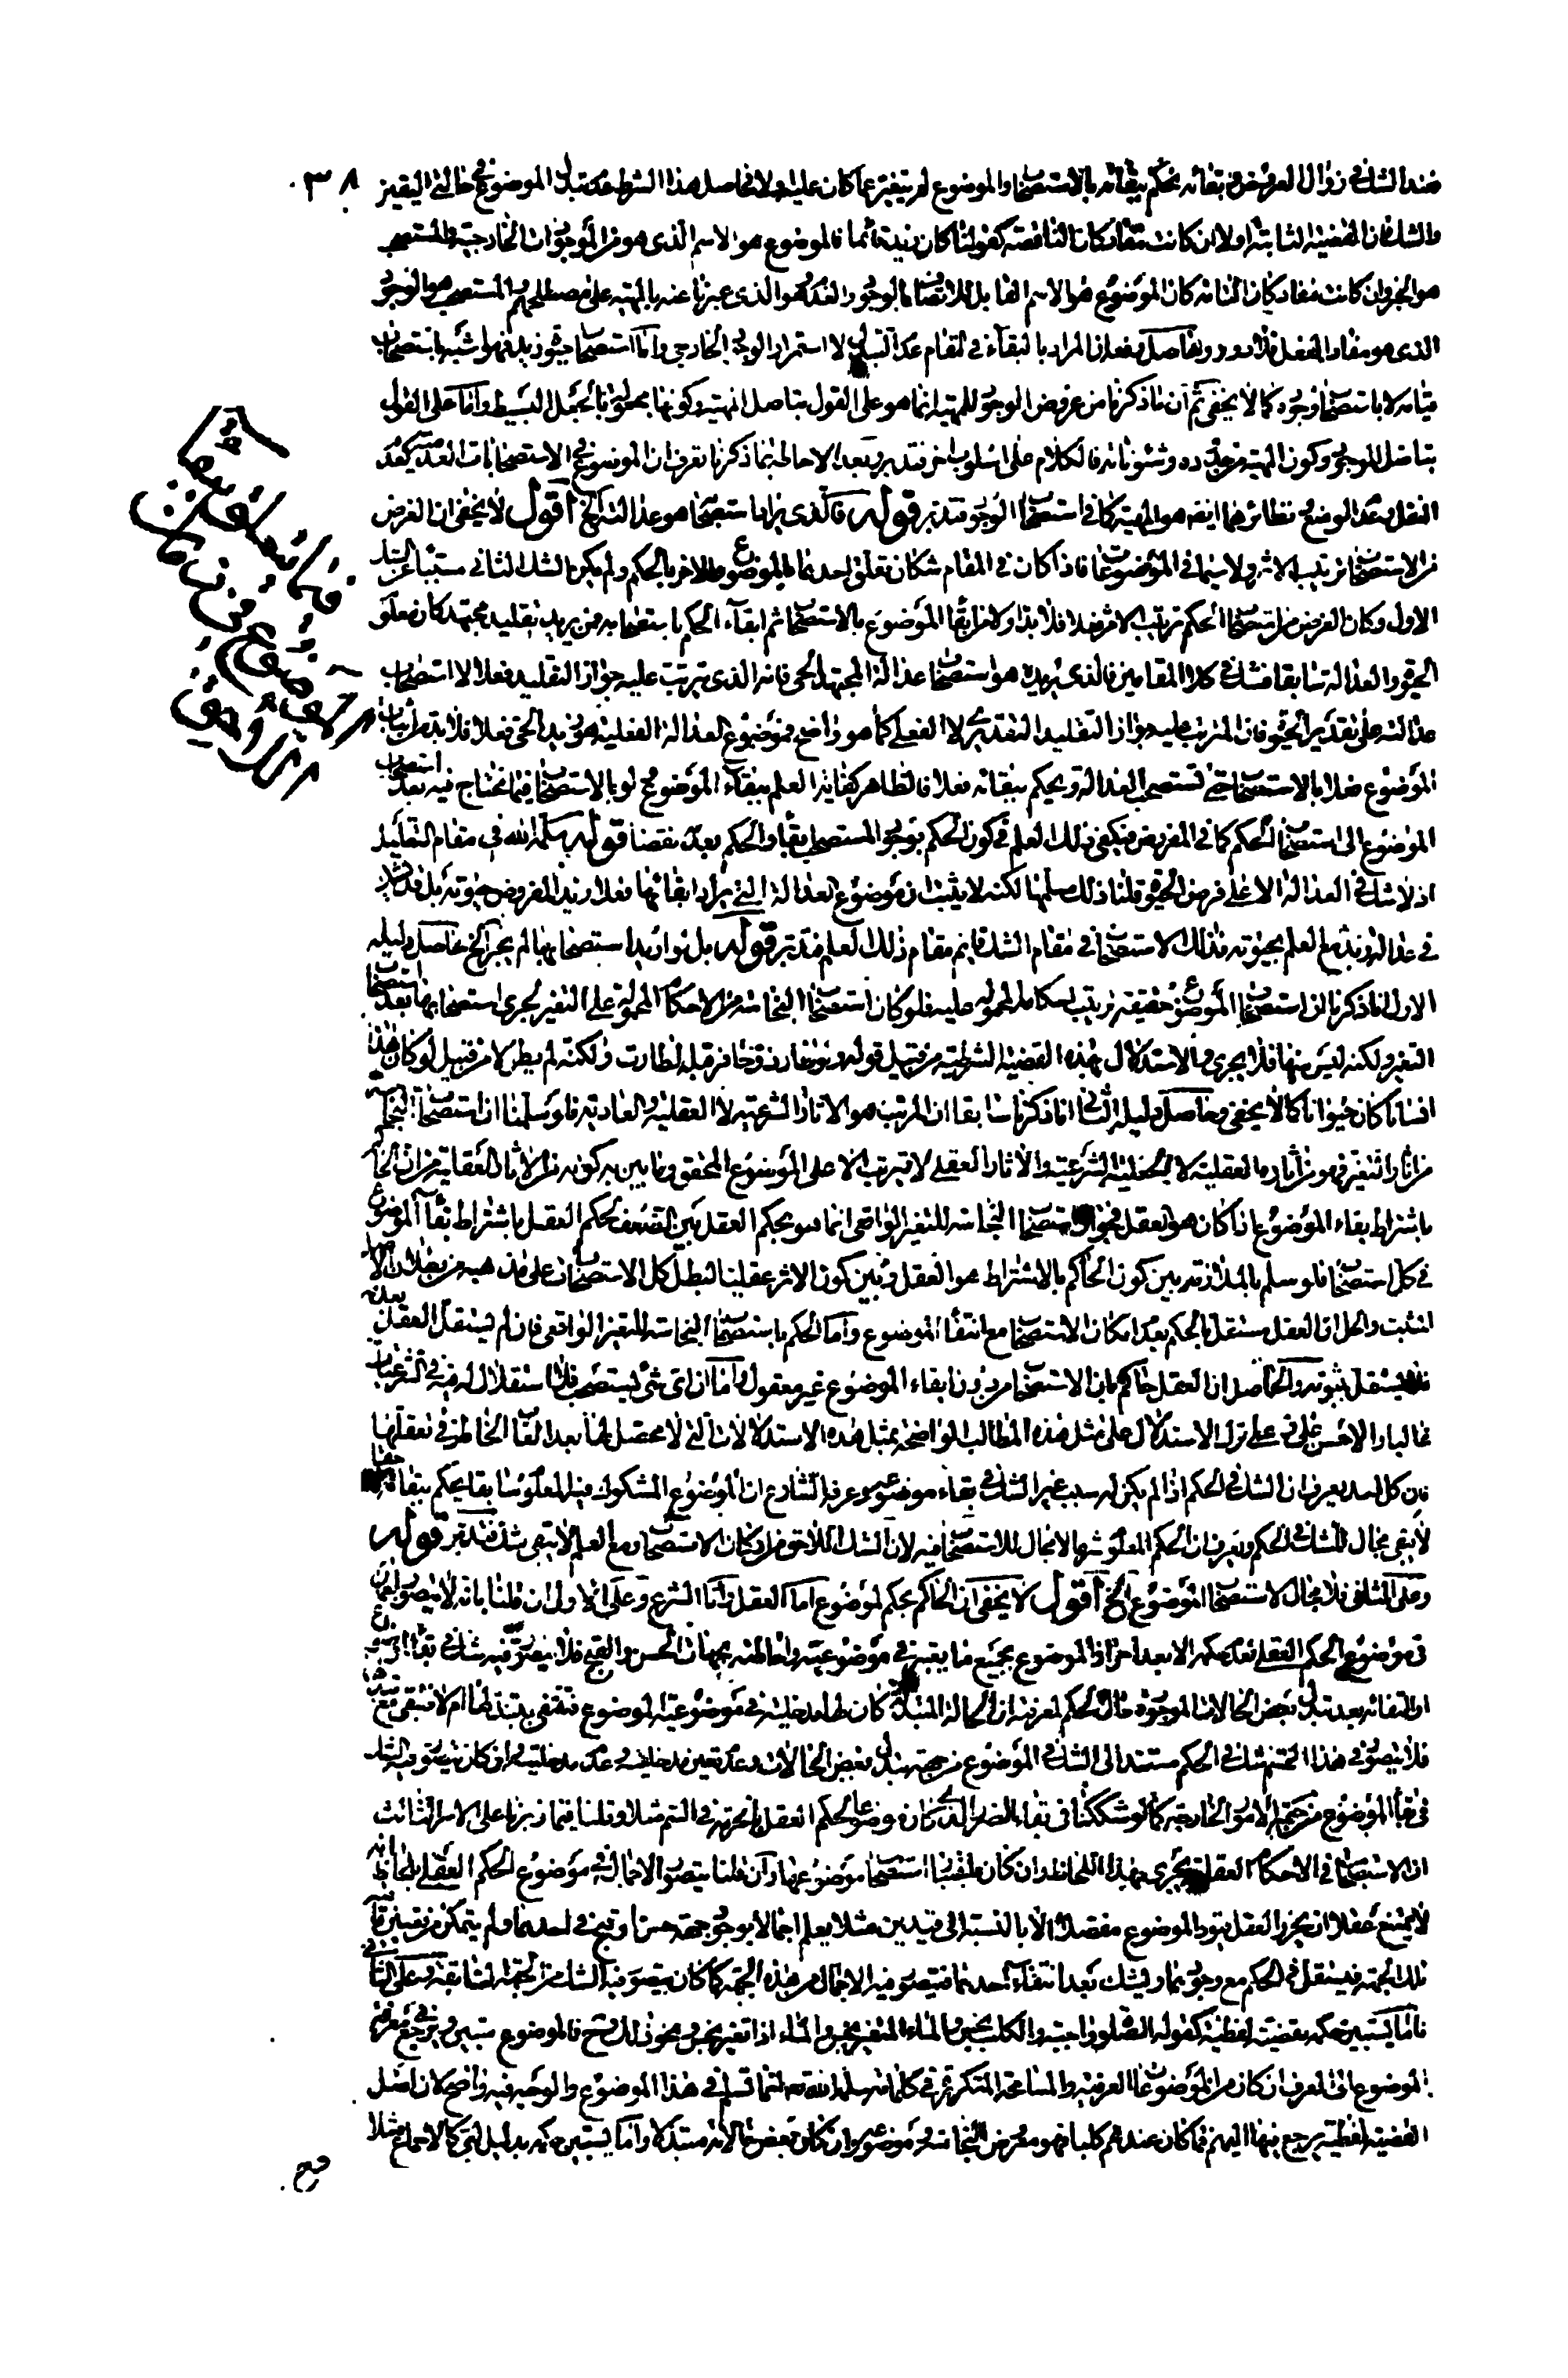 ٣٨
فعند الشك في زوال العرض في بقائه يحكم ببقائه بالاستصحاب والموضوع لم يتغير عما كان عليه ولا حاصل هذا الشرط عدم تبدل الموضوع في حالتي اليقين
والشك فان القضية الثابتة اولا ان كانت مفاد كان الناقصة كقولنا كان زيد قائما فالموضوع هو الاسم الذي هو من الموجودات الخارجية والمستصحب
هو الخبر وان كانت مفاد كان التامة كان الموضوع هو الاسم القابل للاتصاف بالوجود والعدم هو الذي عبرنا عنه بالمهية على مصطلحهم والمستصحب هو الوجود
الذي هو مفاد الفعل فلا دور ولا تسلسل فعلم ان المراد بالبقاء في المقام عدم التبدل لا استمرار الوجود الخارجي واما استصحاب حيوة زيد فهو اشبه باستصحاب
قيامه لا باستصحاب وجوده كما لا يخفى ثم ان ما ذكرنا من عروض الوجود للمهية انما هو على القول بتاصل المهية وكونها مجعولة بالجعل البسيط واما على القول
بتاصل الوجود وكون المهية من حدوده وشئوناته فالكلام على اسلوب اخر فتدبر وبعد الاحاطة بما ذكرنا تعرف ان الموضوع في الاستصحابات العدمية كعدم
النقل وعدم الوضع ونظائرهما ايضا هو المهية كما في استصحاب الوجود فتدبر قوله فالذي يراد استصحابه هو عدالته الخ اقول لا يخفى ان الغرض
من الاستصحاب ترتيب الاثر ولا سيما في الموضوعات فاذا كان في المقام شكان تعلق احدهما بالموضوع والاخر بالحكم ولم يكن الشك الثاني مسببا عن الشك
الاول وكان الغرض من استصحاب الحكم ترتيب الاثر فعلا فلا بد اولا من ابقاء الموضوع بالاستصحاب ثم ابقاء الحكم باستصحابه فمن يريد تقليد مجتهد كان معلوم
الحيوة والعدالة سابقا فشك في كلا المقامين فالذي يريده هو استصحاب عدالة المجتهد الحي فانه الذي يترتب عليه جواز التقليد فعلا لا استصحاب
عدالته على تقدير الحيوة فان المترتب عليه جواز التقليد التقديري لا الفعلي كما هو واضح فموضوع العدالة الفعلية هو زيد الحي فعلا فلا بد من اثبات
الموضوع فعلا بالاستصحاب حتى تستصحب العدالة ويحكم ببقائه فعلا فالظاهر كفاية العلم ببقاء الموضوع ولو بالاستصحاب فيما نحتاج فيه بعد استصحاب
الموضوع الى استصحاب الحكم كما في المفروض فيكفي ذلك العلم في كون الحكم بوجود المستصحب بقاء والحكم بعدمه نقضا قوله سلمه الله في مقام التعليل
اذ لا شك في العدالة الا على فرض الحيوة قلنا ذلك مسلم لكنه لا يثبت ان موضوع العدالة التي يراد ابقائها فعلا زيد المفروض حيوته بل قد يشك
في عدالة زيد مع العلم بحيوته فذلك الاستصحاب في مقام الشك قائم مقام ذلك العلم فتدبر قوله بل لو اريد استصحابها لم يجر الخ حاصل دليله
الاول ما ذكرنا ان استصحاب الموضوع حقيقة ترتيب احكامه المحمولة عليه فلو كان استصحاب النجاسة من الاحكام المحمولة على التغير لجرى استصحابها بعد استصحاب
التغير ولكنه ليس منها فلا يجري والاستدلال بهذه القضية الشرطية من قبيل قوله ولو طار ذو حافر قبله لطارت ولكنه لم يطر لا من قبيل لو كان هذا
انسانا كان حيوانا كما لا يخفى وحاصل دليله الثاني انا ذكرنا سابقا ان المرتب هو الاثار الشرعية لا العقلية والعادية فلو سلمنا ان استصحاب النجاسة
من اثار التغير فهو من اثاره العقلية لا الجعلية الشرعية والاثار العقلي لا تترتب الا على الموضوع المحقق وما بين به كونه من الاثار العقلية من ان الحاكم
باشتراط بقاء الموضوع اذا كان هو العقل فجواز استصحاب النجاسة للتغير الواقعي انما هو بحكم العقل بين الضعف لحكم العقل باشتراط بقاء الموضوع
في كل استصحاب فلو سلم بالملازمة بين كون الحاكم بالاشتراط هو العقل وبين كون الاثر عقليا لبطل كل الاستصحابات على مذهبه من بطلان الاصل
المثبت والحل ان العقل مستقل بالحكم بعدم امكان الاستصحاب مع انتفاء الموضوع واما الحكم باستصحاب النجاسة للتغير الواقعي فان لم يستقل العقل بعدمه
فلا يستقل بثبوته والحاصل ان العقل حاكم بان الاستصحاب من دون ابقاء الموضوع غير معقول واما ان اي شيء ليستصحب فلا استقلال له فيه في الشرعيات
غالبا والاحسن على في علي ترك الاستدلال على مثل هذه المطالب الواضحة بمثل هذه الاستدلالات التي لا محصل لها بعد القاء الخاطر في تعقلها
فان كل احد يعرف ان الشك في الحكم اذا لم يكن له سبب غير الشك في بقاء موضوعه وعرف الشارع ان الموضوع المشكوك فيه المعلوم سابقا يحكم ببقائه حقا
لا يبقى مجال للشك في الحكم ويعرف ان الحكم المعلوم شرعا لا مجال للاستصحاب فيه لان الشك اللاحق من اركان الاستصحاب ومع العلم لا يبقى شك فتدبر قوله
وعلى الثاني فلا مجال لاستصحاب الموضوع الخ اقول لا يخفى ان الحاكم بحكم لموضوع اما العقل واما الشرع وعلى الاول ان قلنا بانه لا يتصور اجمال
في موضوع الحكم العقلي لعدم حكمه الا بعد احراز الموضوع بجميع ما يعتبر في موضوعيته واحاطته بجهات الحسن والقبح فلا يتصور فيه شك في بقاء الموضوع
او انتفائه بعد تبدل بعض الحالات الموجودة حال الحكم لمعرفته ان الحالة المتبدلة كان لها مدخلية في موضوعية الموضوع فتنتفي بتبدلها ام لا فتبقى مع تبدلها
فلا يتصور في هذا القسم شك في الحكم مستند الى الشك في الموضوع من جهة تبدل بعض الحالات وعدم تعين مدخليته وعدم مدخليته وان كان يتصور فيه الشك
في بقاء الموضوع من جهة الامور الخارجية كما لو شككنا في بقاء الضرر الذي كان موضوعا لحكم العقل بالحرمة في السم مثلا وقلنا فيما زبرنا على الامر الثالث
ان الاستصحاب في الاحكام العقلية يجري بهذا اللحاظ وان قلنا يتصور الاجمال في موضوع الحكم العقلي بلحاظ انه
لا يمتنع عقلا ان يحرز العقل قيود الموضوع مفصلا الا بالنسبة الى قيدين مثلا يعلم اجمالا بوجود جهة حسن او قبح في احدهما ولم يتمكن من تعيين
تلك الجهة فيستقل في الحكم مع وجودهما ويشك بعد انتفاء احدهما فيتصور فيه الاجمال من هذه الجهة كما كان يتصور فيه الشك من الجهة السابقة وعلى الثاني
فاما يستبين حكمه بقضية لفظية كقوله الصلوة واجبة والكلب نجس والماء المتغير نجس والماء اذا تغير نجس ونحو ذلك فالموضوع متبين ويرجع في معرفة
الموضوع الى العرف ان كان من الموضوعات العرفية والمسامحة المتكررة في كلماته سلمه الله انما تسلم في هذا الموضوع والوجه فيه واضح لان اصل
القضية لفظية يرجع فيها اليهم فما كان عندهم كلبا فهو معروض النجاسة وموضوعه وان كان بعض حالاته متبدلا واما يستبين حكمه بدليل لبي كالاجماع مثلا